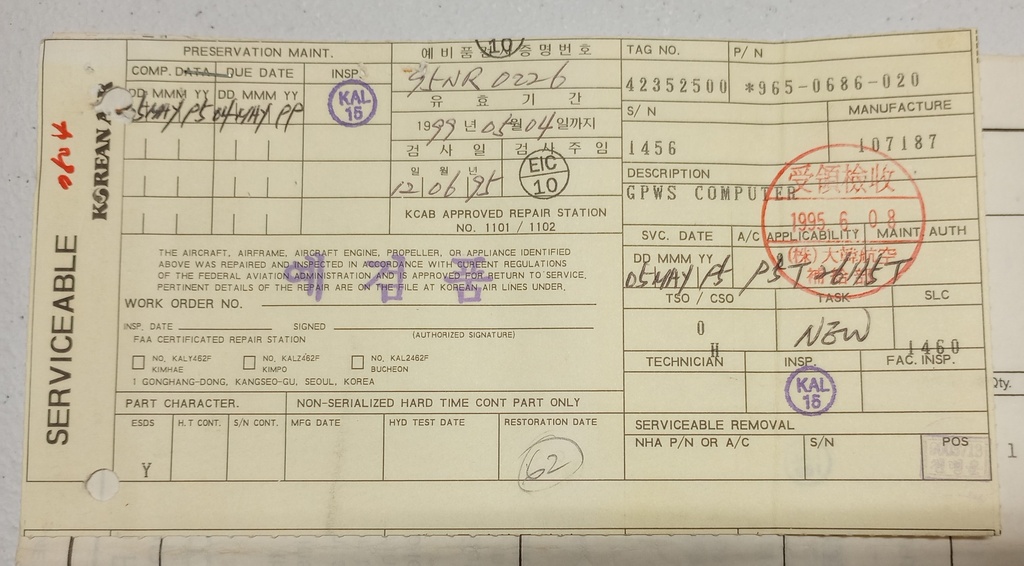 SERVICEABLE
KOREAN A
PRESERVATION MAINT.
COMP. DATA DUE DATE INSP.
DD MMM YY DD MMM YY
KAL 15
예비품검사증명번호
10
95NR 0226
유효기간
1999년 05월 04일까지
검사일 검사주임
일 월 년
12 06 95
EIC 10
KCAB APPROVED REPAIR STATION
NO. 1101 / 1102
THE AIRCRAFT, AIRFRAME, AIRCRAFT ENGINE, PROPELLER, OR APPLIANCE IDENTIFIED
ABOVE WAS REPAIRED AND INSPECTED IN ACCORDANCE WITH CURRENT REGULATIONS
OF THE FEDERAL AVIATION ADMINISTRATION AND IS APPROVED FOR RETURN TO SERVICE.
PERTINENT DETAILS OF THE REPAIR ARE ON THE FILE AT KOREAN AIR LINES UNDER.
예검품
WORK ORDER NO.
INSP. DATE SIGNED
(AUTHORIZED SIGNATURE)
FAA CERTIFICATED REPAIR STATION
NO. KALY462F NO. KALZ462F NO. KAL2462F
KIMHAE KIMPO BUCHEON
1 GONGHANG-DONG, KANGSEO-GU, SEOUL, KOREA
PART CHARACTER. NON-SERIALIZED HARD TIME CONT PART ONLY
ESDS H.T CONT. S/N CONT. MFG DATE HYD TEST DATE RESTORATION DATE
Y
62
TAG NO. P/N
42352500 *965-0686-020
S/N MANUFACTURE
1456 107187
DESCRIPTION
GPWS COMPUTER
受領檢收
1995. 6. 08
(株)大韓航空
SVC. DATE A/C APPLICABILITY MAINT. AUTH
DD MMM YY
TSO / CSO TASK SLC
0 H NEW 1460
TECHNICIAN INSP. FAC. INSP.
KAL 15
SERVICEABLE REMOVAL
NHA P/N OR A/C S/N POS
Qty.
1